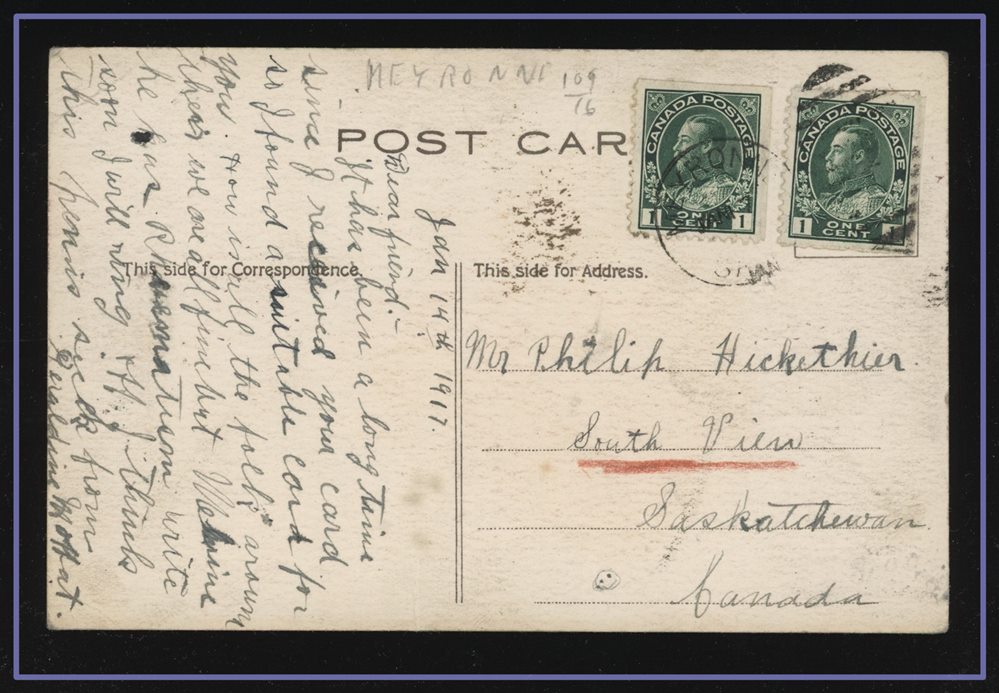 MEYRONNE 109
16
POST CAR
CANADA POSTAGE
1 ONE CENT 1
CANADA POSTAGE
1 ONE CENT 1
This side for Correspondence.
This side for Address.
Jan 14th 1917.
Dear friend:-
It has been a long time
since I received your card
so I found a suitable card for
you. How is all the folks around
there we are all fine but
he has write
soon I will ring off I think
this pen is sick from
Geraldine Moffat.
Mr Philip Hickethier
South View
Saskatchewan
Canada